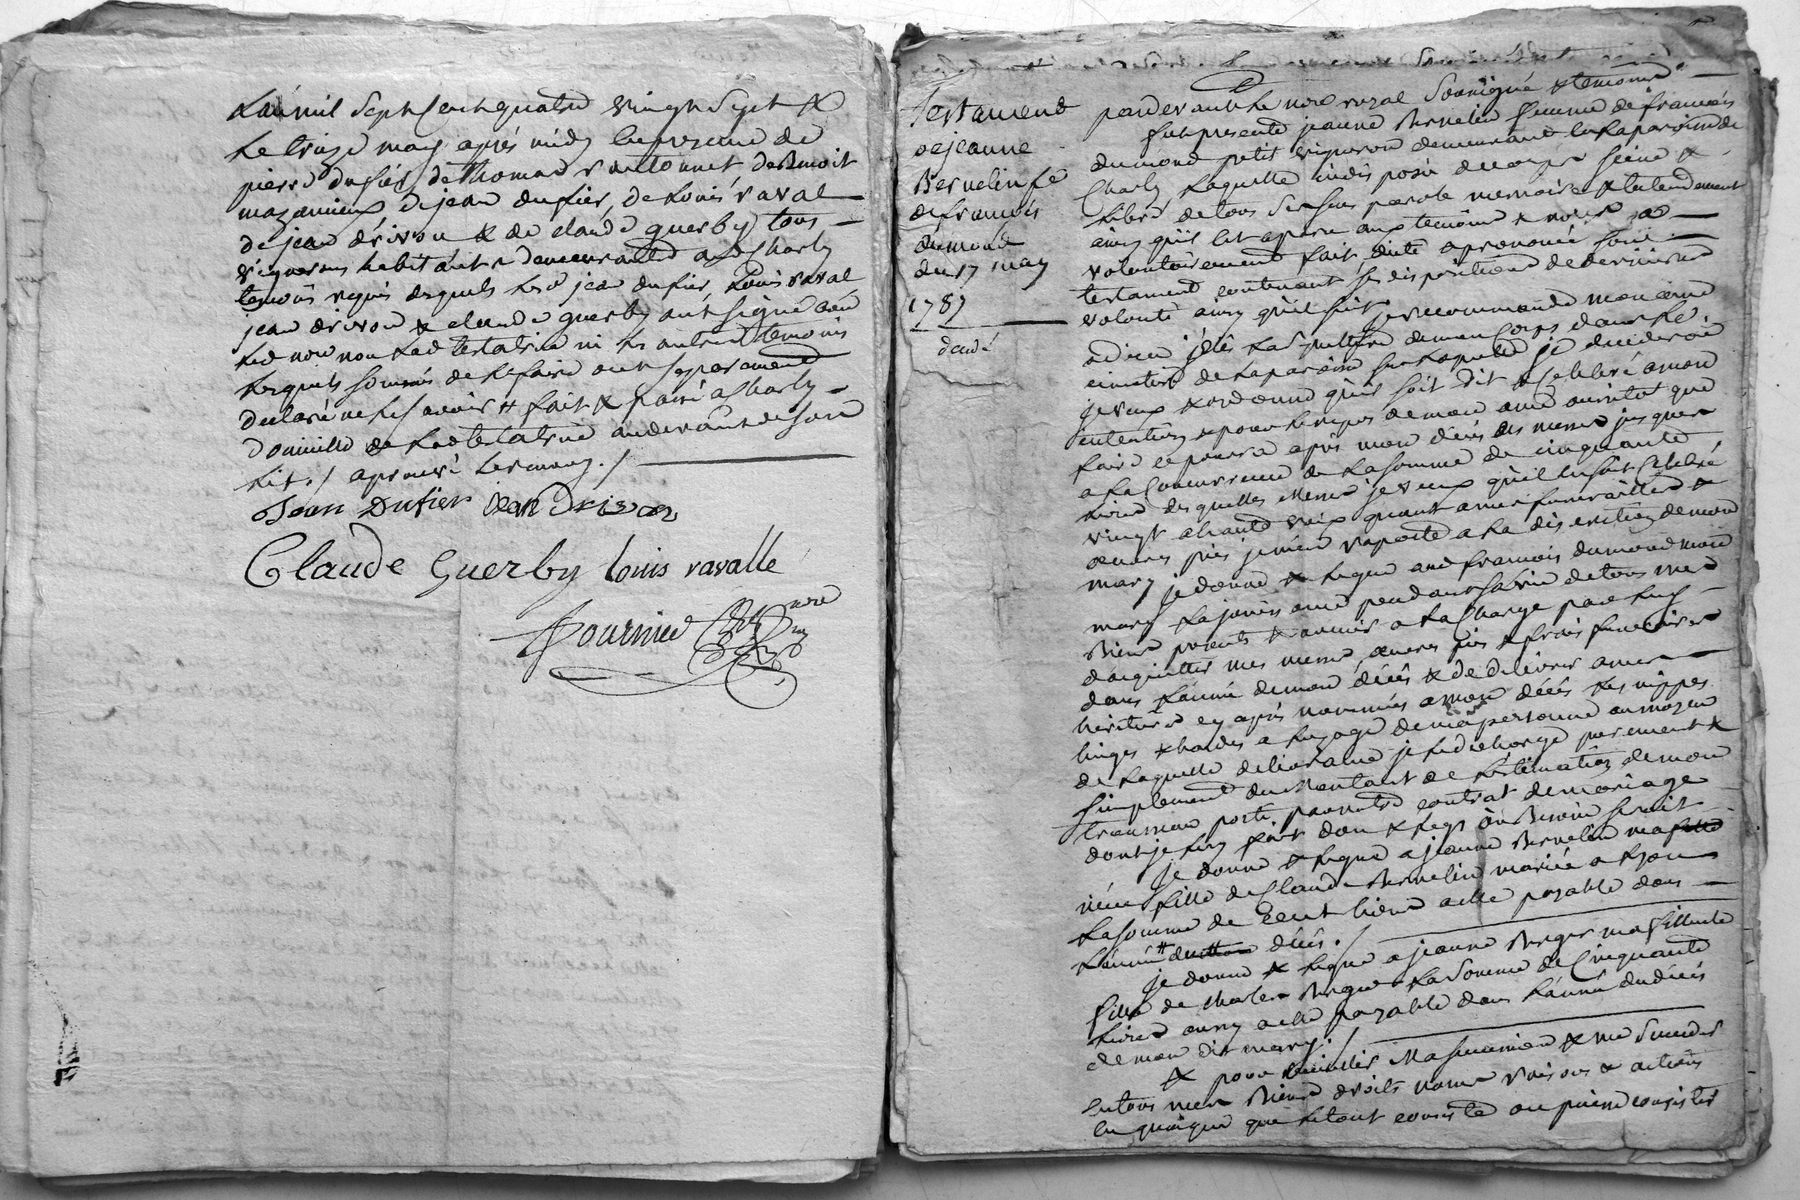 L'an mil sept cent quatre vingt sept &
le treize may après midy en presence de
pierre dufier, de thomas vautonet de Benoit
mazancieux de jean dufier, de Louis raval
de jean drivon & de claude guerby tous
vignerons habitants & demeurants a Charly
temoins requis desquels lesd jean dufier Louis raval
jean drivon & claude guerby ont signé avec
led nore non lad testatrice ni les autres temoins
lesquels sommés de le faire ont separement
declaré ne le scavoir # fait & passé a Charly
domicille de lad testatrice audevant de son
lit ./ aprouvé les mots ./
Jean Dufier Jean Drivon
Claude Guerby Louis ravalle
fournier nore
Testament
de jeanne
Bernelin fe
de francois
dumond
du 17 may
1787
pardevant le nore royal soussigné & temoins
fut presente jeanne Bernelin femme de francois
dumond petit vigneron demeurant en la paroisse de
Charly laquelle indisposée de corps seine &
libre de tous ses sens parole memoire & entendement
ainsy quil est aparu aux temoins & nore a
volontairement fait dicté & prononcé son
testament contenant ses dispositions de derniere
volonté ainsy quil suit je recommande mon ame
a dieu j'élis la sepulture de mon corps dans le
cimetiere de la paroisse sur laquelle je decederai
je veux & ordonne qu'il soit dit & celebré a mon
intention & pour le repos de mon ame aussitot que
faire ce pourra après mon décès des messes jusques
a la concurrence de la somme de cinquante
livres desquelles messes je veux qu'il en soit celebré
vingt a haute voix quant a mes funerailles &
œuvres pies je m'en raporte a la discretion de mon
mary je donne & legue aud francois dumond mon
mary la jouissance pendant sa vie de tous mes
Biens presents & avenir a la Charge par luy
d'acquitter mes messes œuvres pies & frais funeraires
dans l'année de mon décès & de delivrer a mes
heritiers cy après nommés a mon décès les nippes
linges & hardes a l'usage de ma personne au moyen
de laquelle delivrance je le decharge purement &
simplement du montant de l'estimation de mon
trousseau porté par notre contrat de mariage
dont je luy fais don & legs ou Besoin seroit
je donne & legue a jeanne Bernelin ma
niece fille de Claude Bernelin mariée a Lyon
la somme de Cent livres a elle payable dans
l'année # décès ./
je donne & legue a jeanne Berger ma filleule
fille de Charles Berger la somme de Cinquante
livres aussy a elle payable dans l'année du décès
de mon dit mary ./
& pour recueillir ma succession & me succeder
en tous mes Biens droits noms raisons & actions
en quoique que le tout consiste ou puisse consister